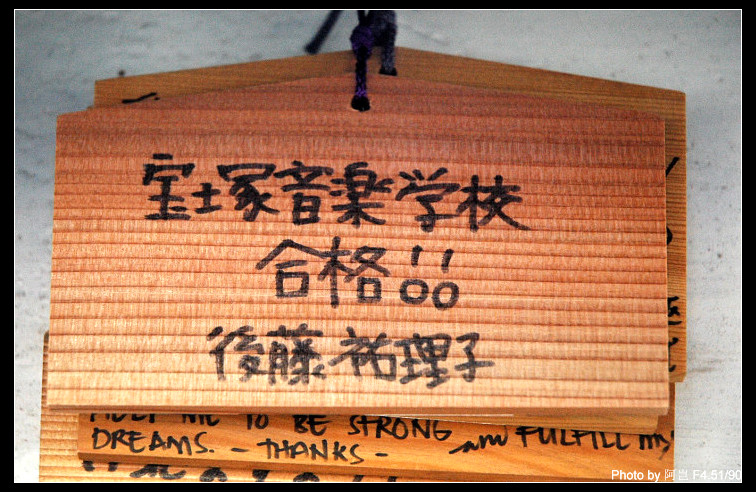 宝塚音楽学校
合格!!
後藤祐理子
TO BE STRONG
AND FULFILL MY
DREAMS. - THANKS -
Photo by 阿岂 F4.51/90